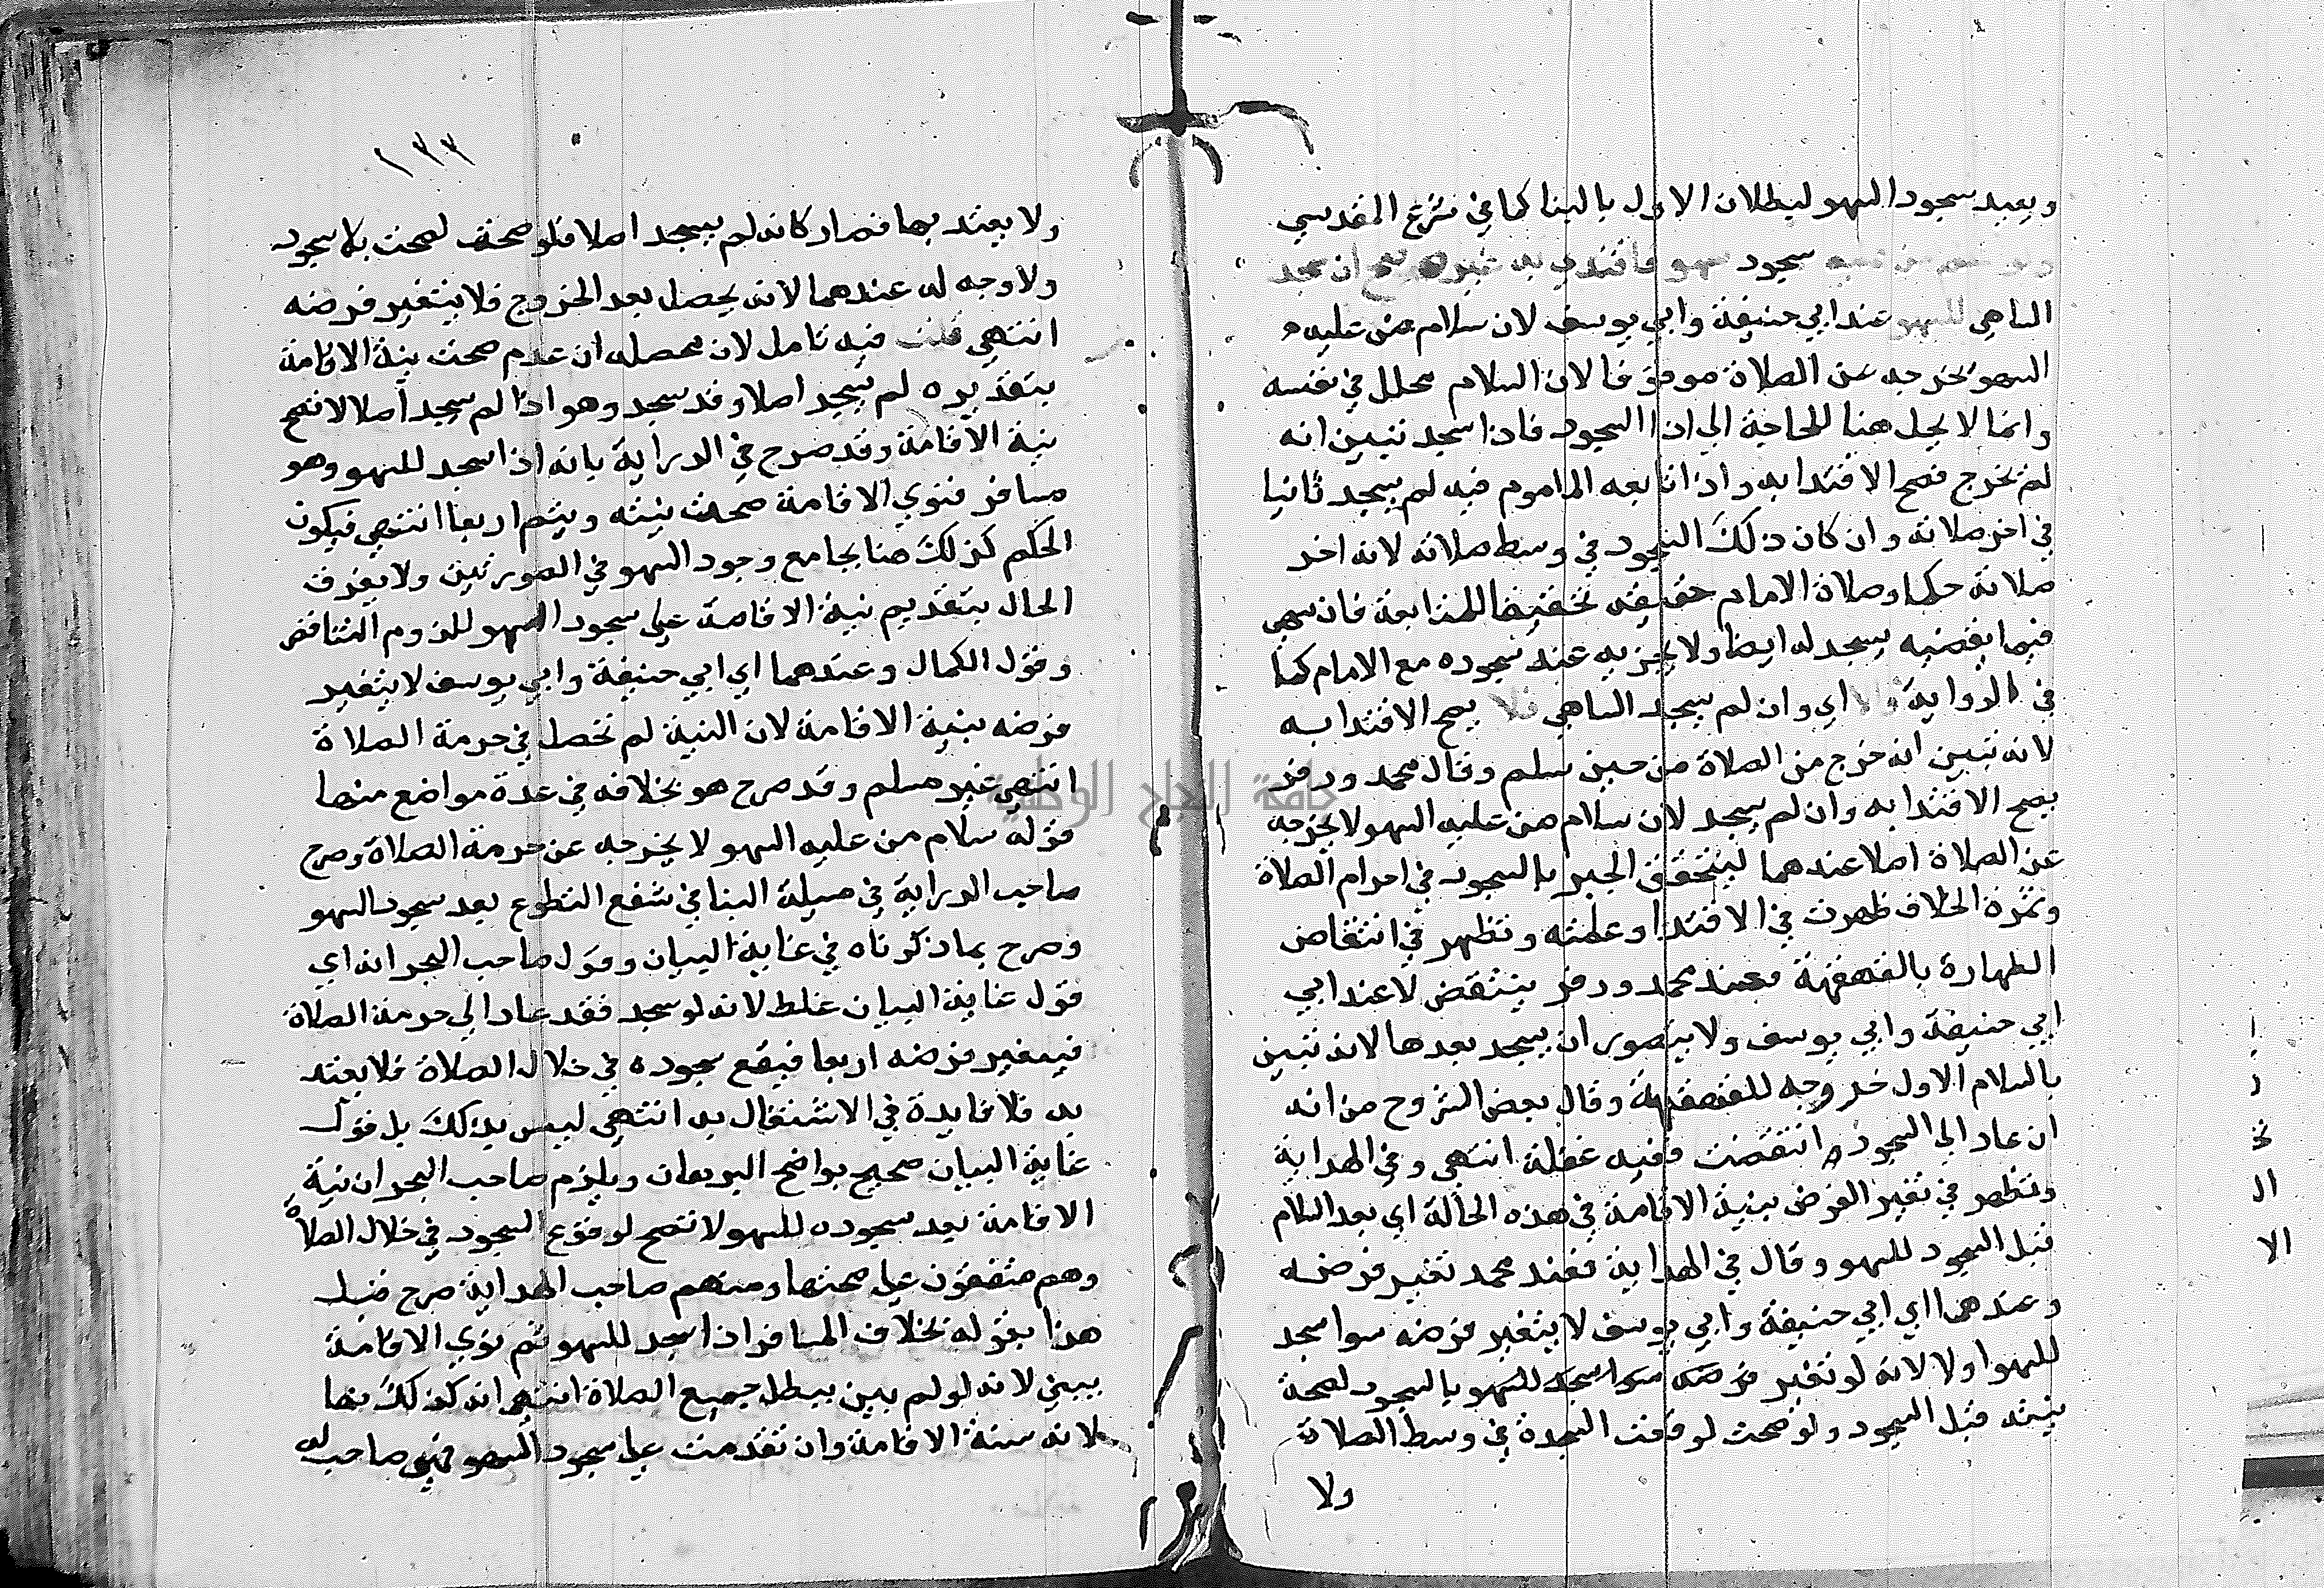 ويعيد سجود السهو لبطلان الاول بالبنا كما في شرح المقدسي
سجود سهو فاقتدي به غيره صح ان سجد
الساهي للسهو عند ابي حنيفة وابي يوسف لان سلام من عليه
السهو يخرجه عن الصلاة موقوفا لان السلام محلل في نفسه
وانما لا يحل هنا للحاجة الي اداا السجود فاذا سجد تبين انه
لم يخرج فصح الاقتدا به واذا تابعه الماموم فيه لم يسجد ثانيا
في اخر صلاته وان كان ذلك السجود في وسط صلاته لانه اخر
صلاته حكما وصلاة الامام حقيقه تحقيقا للمتابعة فان سهي
فيما يقضيه يسجد له ايضا ولا يجزيه عنه سجوده مع الامام كما
في الدراية والا اي وان لم يسجد الساهي فلا يصح الاقتدا به
لانه تبين انه خرج من الصلاة من حين سلم وقال محمد وزفر
يصح الاقتدا به وان لم يسجد لان سلام من عليه السهو لا يخرجه
عن الصلاة اصلا عندهما ليتحقق الجبر بالسجود في احرام الصلاة
وثمرة الخلاف ظهرت في الاقتدا وعلمته وتظهر في انتقاض
الطهارة بالقهقهة فعند محمد وزفر ينتقض لا عند ابي
ابي حنيفة وابي يوسف ولا يتصور ان يسجد بعدها لانه تبين
بالسلام الاول خروجه للقهقهة وقال بعض الشروح من انه
ان عاد الي السجود انتقضت ففيه غفلة انتهي وفي الهداية
وتظهر في تغير الفرض بنية الاقامة في هذه الحالة اي بعد السلام
قبل السجود للسهو وقال في الهداية فعند محمد تغير فرضه
وعندهما اي ابي حنيفة وابي يوسف لا يتغير فرضه سوا سجد
للسهو اولا لانه لو تغير فرضه سوا سجد للسهو بالسجود لصحة
نيته قبل السجود ولو صحت لوقعت السجدة في وسط الصلاة
ولا
١٣٣
ولا يعتد بها فصار كانه لم يسجد اصلا فلو صحت لصحت بلا سجود
ولا وجه له عندهما لانه يحصل بعد الخروج فلا يتغير فرضه
انتهي قلت فيه تامل لان محصله ان عدم صحت نية الاقامة
بتقديره لم يسجد اصلا وقد سجد وهو اذا لم يسجد اصلا لا تصح
نية الاقامة وقد صرح في الدراية بانه اذا سجد للسهو وهو
مسافر فنوي الاقامة صحت نيته ويتم اربعا انتهي فيكون
الحكم كذلك هنا بجامع وجود السهو في الصورتين ولا يفرف
الحال بتقديم نية الاقامة علي سجود السهو للزوم التناقض
وقول الكمال وعندهما اي ابي حنيفة وابي يوسف لا يتغير
فرضه بنية الاقامة لان النية لم تحصل في حرمة الصلاة
انتهي غير مسلم وقد صرح هو بخلافه في عدة مواضع منها
قوله سلام من عليه السهو لا يخرجه عن حرمة الصلاة وصرح
صاحب الدراية في مسيلة البنا في شفع التطوع بعد سجود السهو
وصرح بما ذكرناه في غاية البيان وقول صاحب البحر انه اي
قول غاية البيان غلط لانه لو سجد فقد عاد الي حرمة الصلاة
فيتغير فرضه اربعا فيقع سجوده في خلال الصلاة فلا يعتد
به فلا فايدة في الاشتغال به انتهي ليس بذلك بل قول
غاية البيان صحيح بواضح البرهان ويلزم صاحب البحر ان نية
الاقامة بعد سجوده للسهو لا تصح لوقوع السجود في خلال الصلاة
وهم متفقون علي صحتها ومنهم صاحب الهداية صرح قبل
هذا بقوله بخلاف المسافر اذا سجد للسهو ثم نوي الاقامة
يبني لانه لو لم يبن يبطل جميع الصلاة انتهي انه كذلك هنا
لانه سنة الاقامة وان تقدمت علي سجود السهو فهي صاحب له